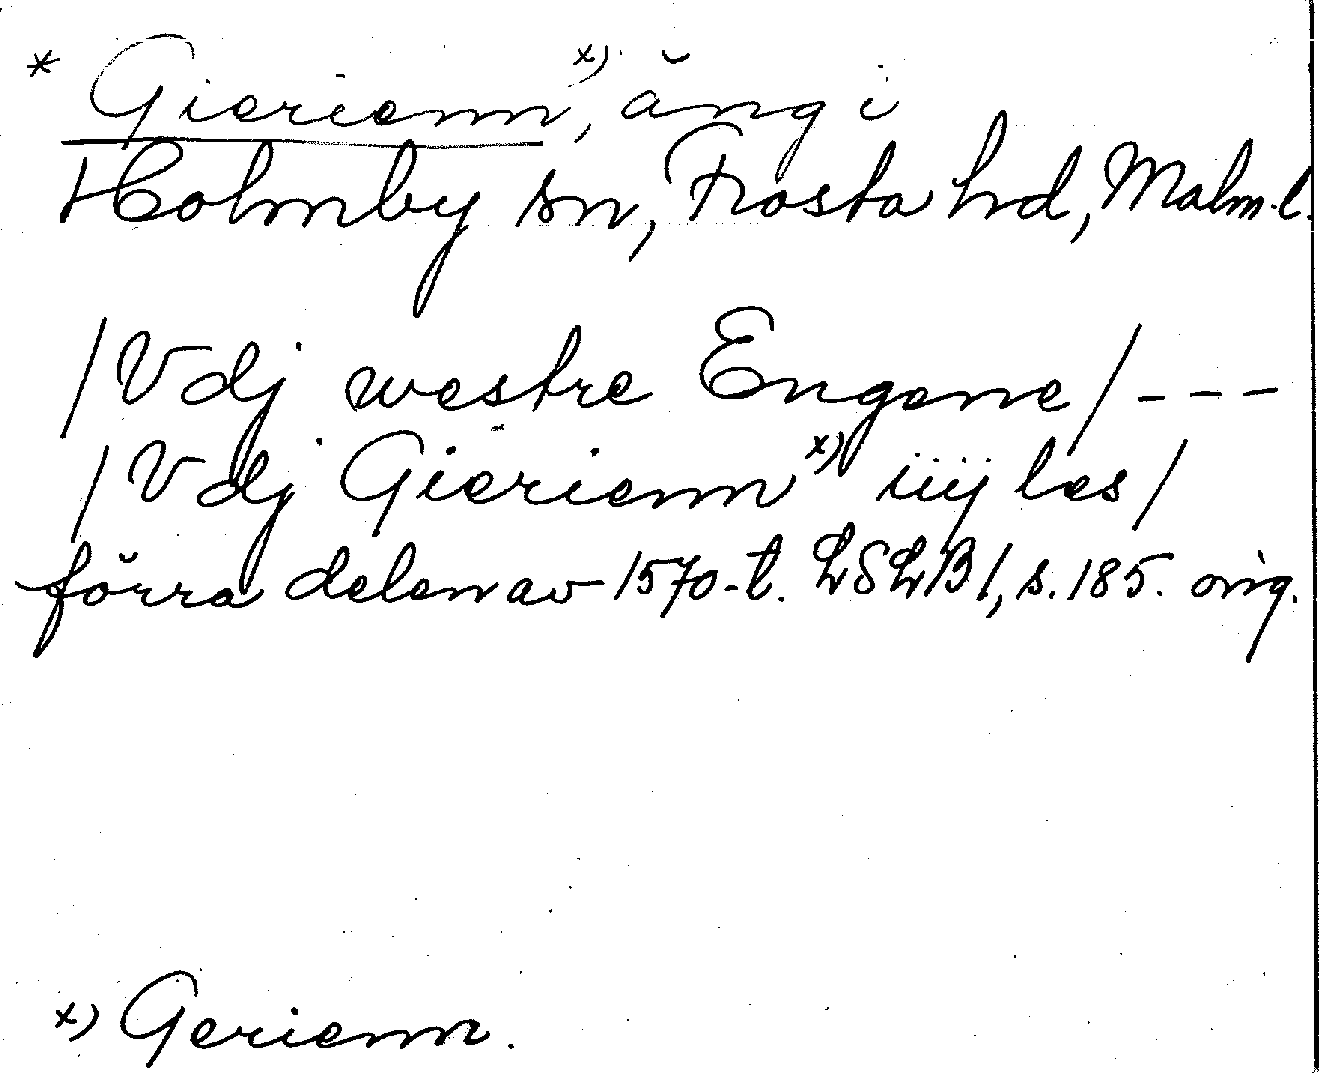 * Gierienn x), äng i
Holmby sn, Frosta hd, Malm. l.
/Vdj westre Engene/ - - -
/Vdj Gierienn x) iiij les/
förra delen av 1570-t. LSLB I, s. 185. orig.
x) Gerienn.